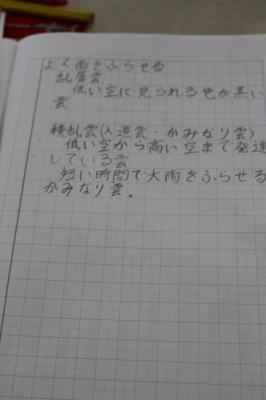 よく雨をふらせる
乱層雲
低い空に見られる色が黒い
雲
積乱雲(入道雲・かみなり雲)
低い空から高い空まで発達
している雲
短い時間で大雨をふらせる
かみなり雲.